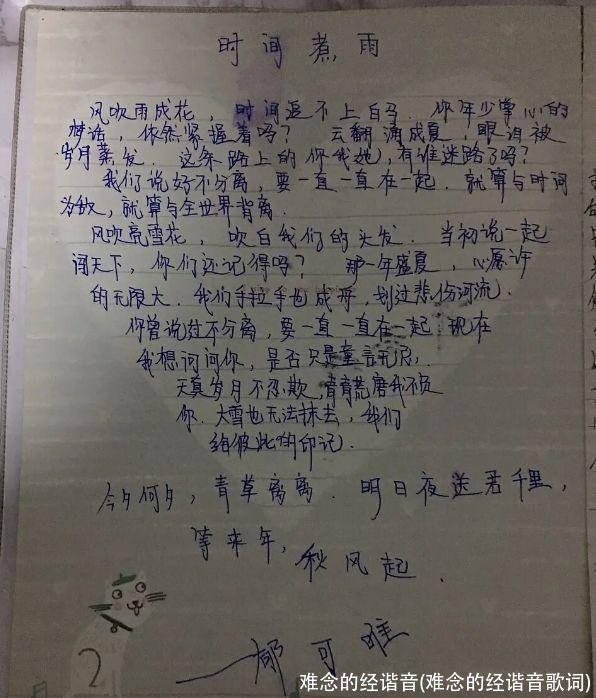 时间煮雨
风吹雨成花，时间追不上白马．你年少掌心的
梦话，依然紧握着吗？云翻涌成夏，眼泪被
岁月蒸发．这条路上的你我她，有谁迷路了吗？
我们说好不分离，要一直一直在一起．就算与时间
为敌，就算与全世界背离．
风吹亮雪花，吹白我们的头发．当初说一起
闯天下，你们还记得吗？那一年盛夏，心愿许
的无限大．我们手拉手也成舟，划过悲伤河流．
你曾说过不分离，要一直一直在一起．现在
我想问问你，是否只是童言无忌．
天真岁月不忍欺，青春荒唐我不负
你．大雪也无法抹去，我们
给彼此的印记．
今夕何夕，青草离离．明月夜送君千里，
等来年，秋风起．
——郁可唯
2
难念的经谐音(难念的经谐音歌词)